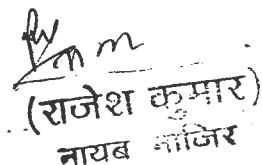 (राजेश कुमार)
नायब नाजिर